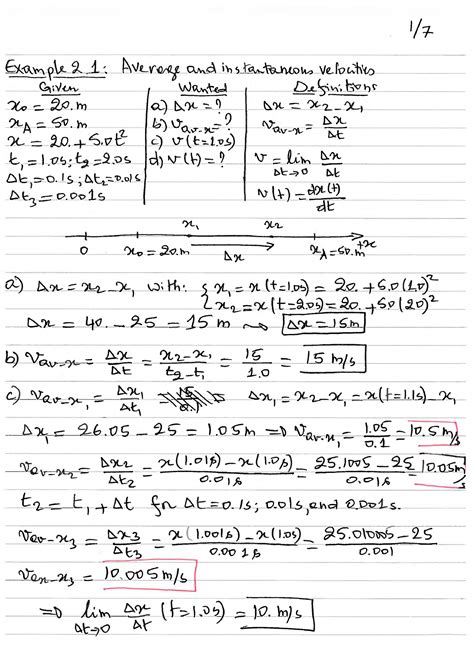 1/7
Example 2.1: Average and instantaneous velocities
Given Wanted Definitions
x₀ = 20. m a) Δx = ? Δx = x₂ - x₁
x_A = 50. m b) v_av-x = ? v_av-x = Δx/Δt
x = 20. + 5.0t² c) v(t=1.0s)
t₁ = 1.0s; t₂ = 2.0s d) v(t) = ? v = lim Δt→0 Δx/Δt
Δt₁ = 0.1s; Δt₂ = 0.01s v(t) = dx(t)/dt
Δt₃ = 0.001s
x₁ x₂ +x
0 x₀ = 20. m Δx x_A = 50. m
a) Δx = x₂ - x₁ with: { x₁ = x(t=1.0s) = 20. + 5.0(1.0)²
x₂ = x(t=2.0s) = 20. + 5.0(2.0)²
Δx = 40. - 25 = 15 m ⇝ Δx = 15 m
b) v_av-x = Δx/Δt = (x₂ - x₁)/(t₂ - t₁) = 15/1.0 = 15 m/s
c) v_av-x₁ = Δx₁/Δt₁ Δx₁ = x₂ - x₁ = x(t=1.1s) - x₁
Δx₁ = 26.05 - 25 = 1.05 m ⇒ v_av-x₁ = 1.05/0.1 = 10.5 m/s
v_av-x₂ = Δx₂/Δt₂ = (x(1.01s) - x(1.0s))/0.01s = (25.1005 - 25)/0.01s = 10.05 m/s
t₂ = t₁ + Δt for Δt = 0.1s; 0.01s, and 0.001s.
v_av-x₃ = Δx₃/Δt₃ = (x(1.001s) - x(1.0s))/0.001s = (25.01005 - 25)/0.001
v_av-x₃ = 10.005 m/s
⇒ lim Δt→0 Δx/Δt (t=1.0s) = 10. m/s